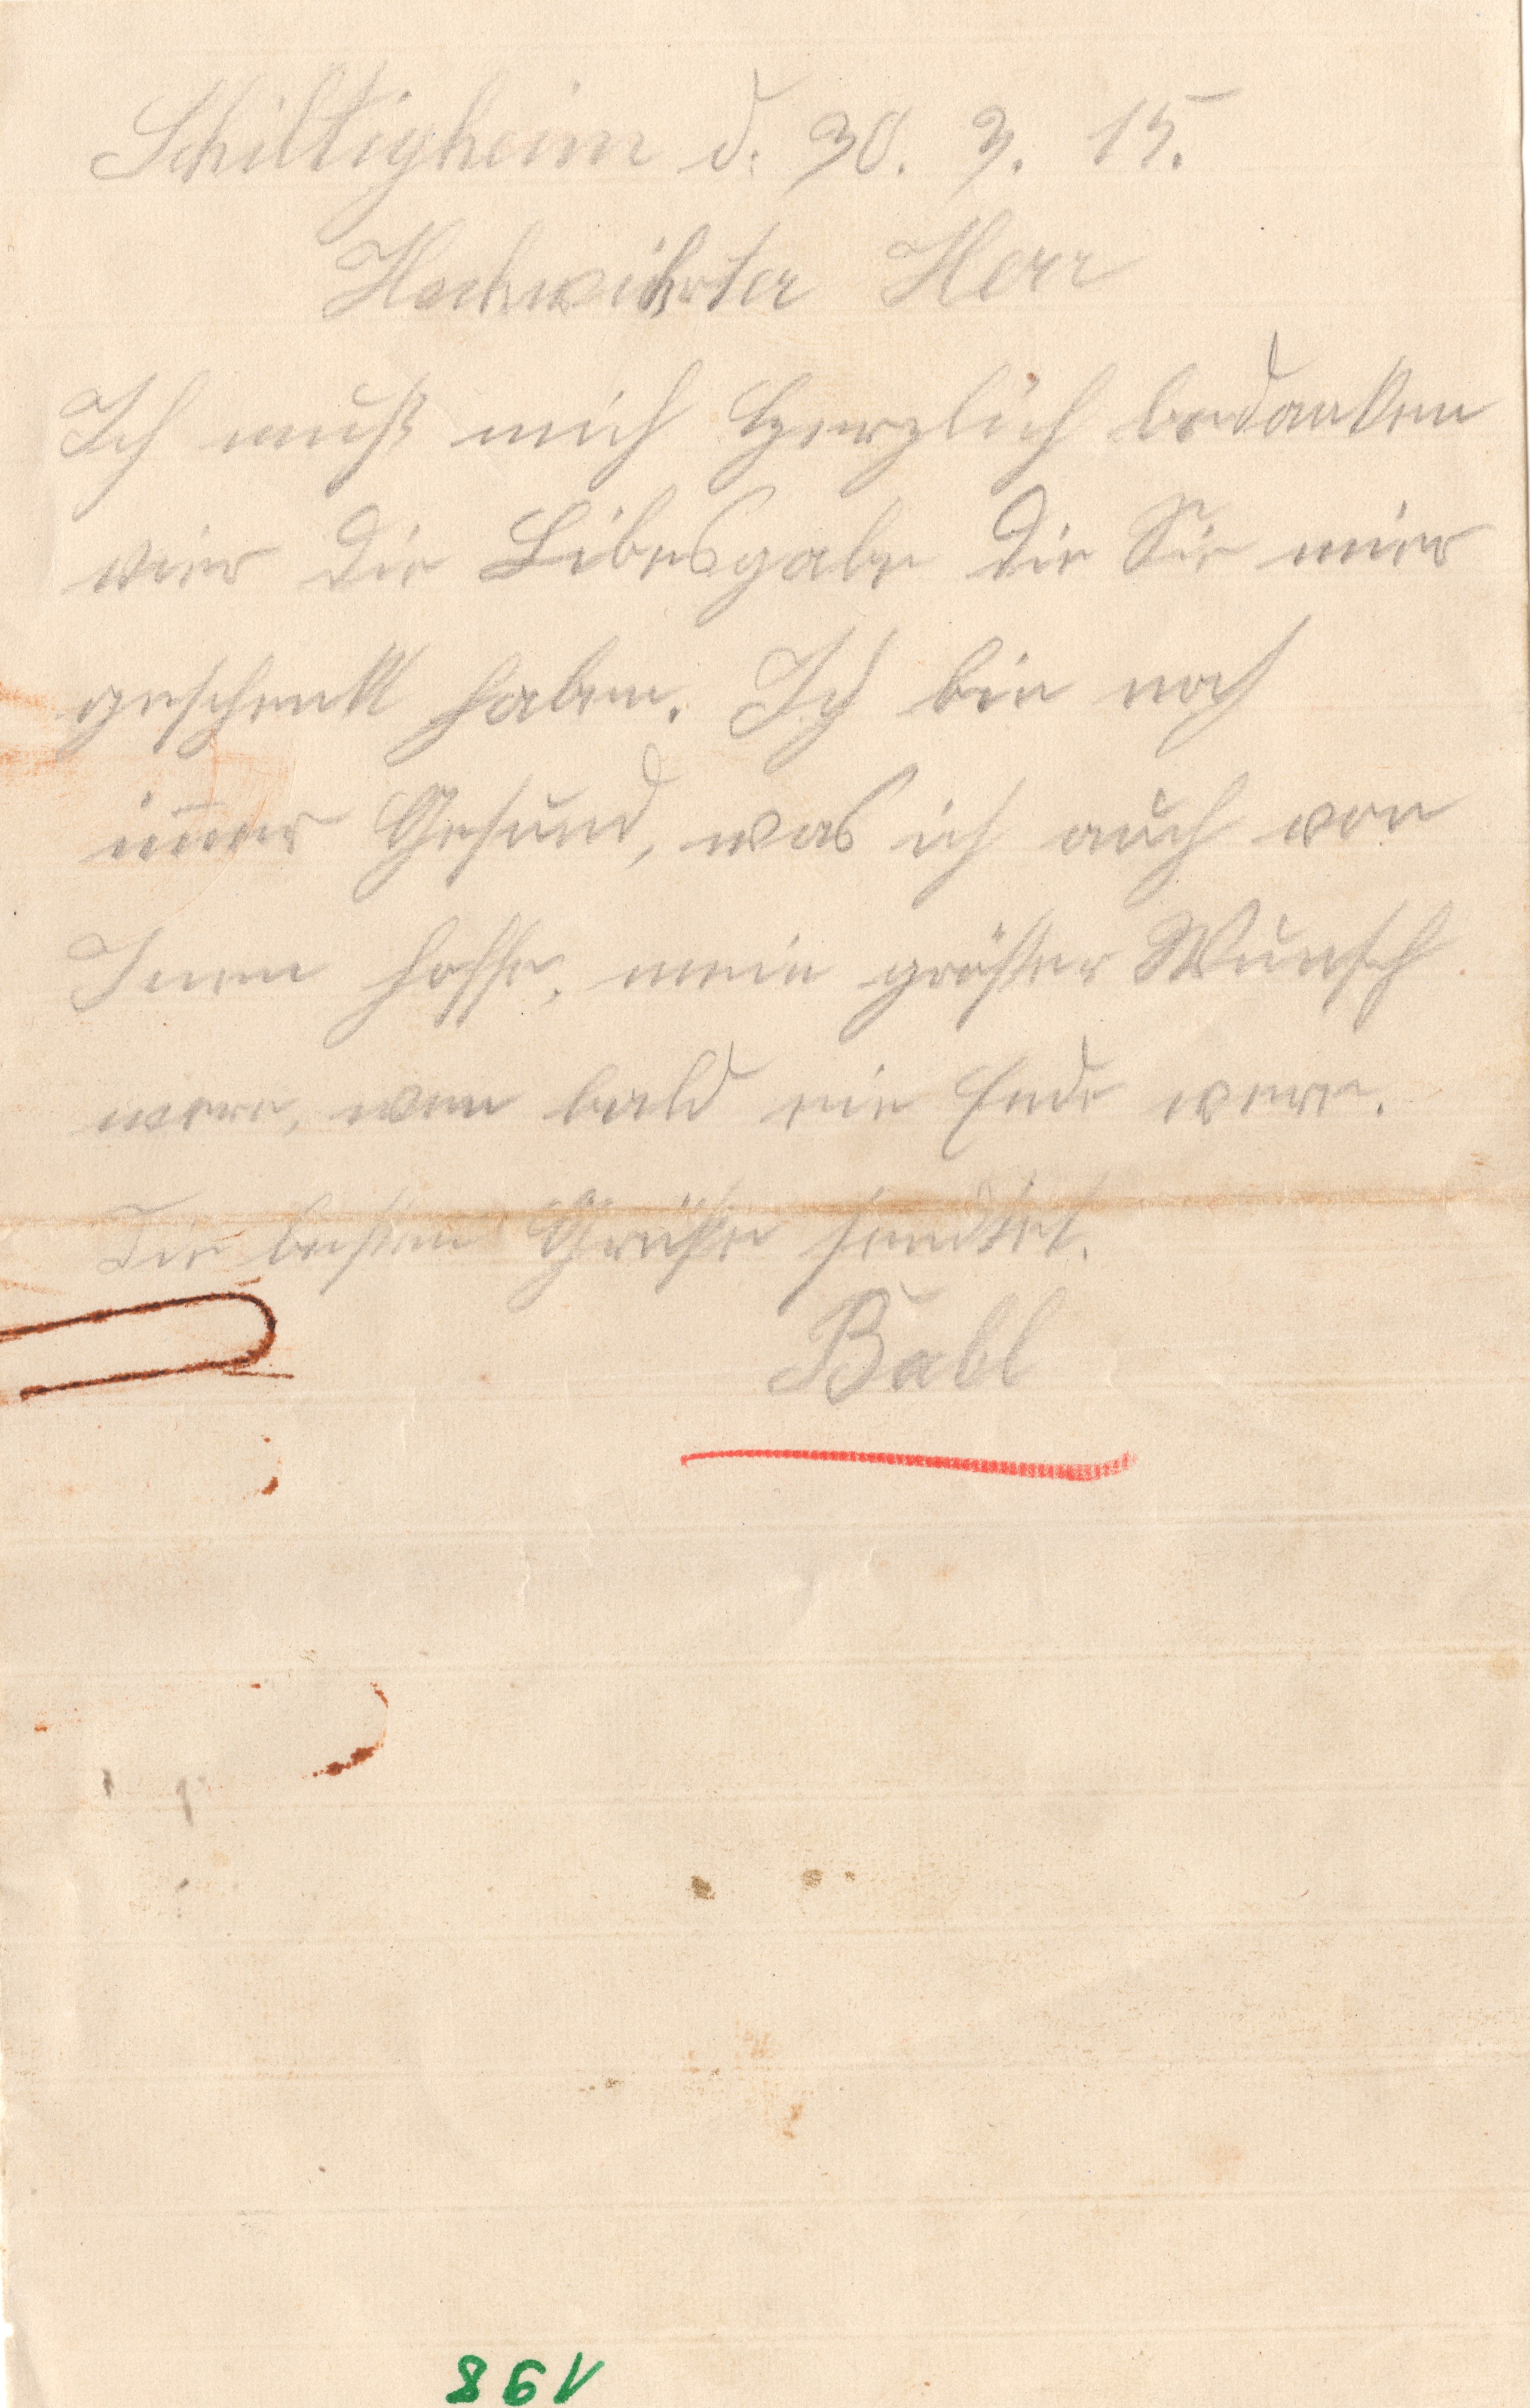 Schiltigheim d. 30. 3. 15.
Hochwihrter Herr
Ich muß mich Herzlich bedanken
vier die Libesgabe die Sie mier
geschenkt haben. Ich bin noch
im̅er Gesund, was ich auch von
Inen hoffe, mein größter Wunsch
were, wen bald ein Ende were.
Die besten Grüße sendtet.
Babl
198